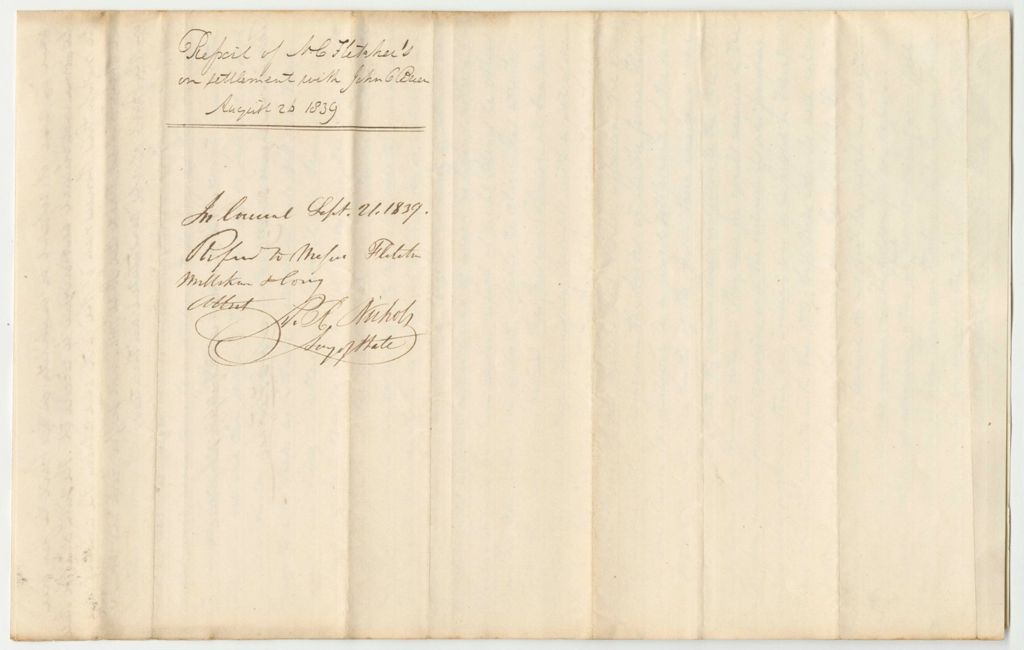 Report of N C Fletcher's
on settlement with John C
August 20 1839
In Council Sept. 21. 1839.
Refer'd to Messrs Fletcher
Milliken & Cony
Attest
P. C. Nichols
Secy of State